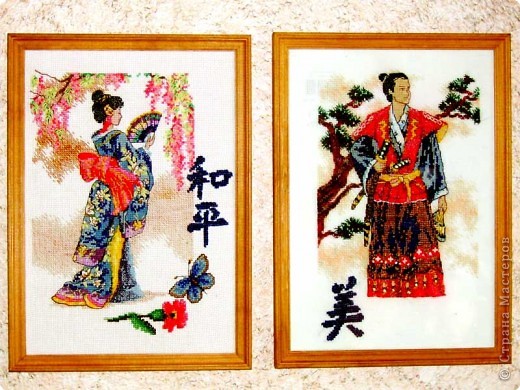 和平
美
© Страна Мастеров